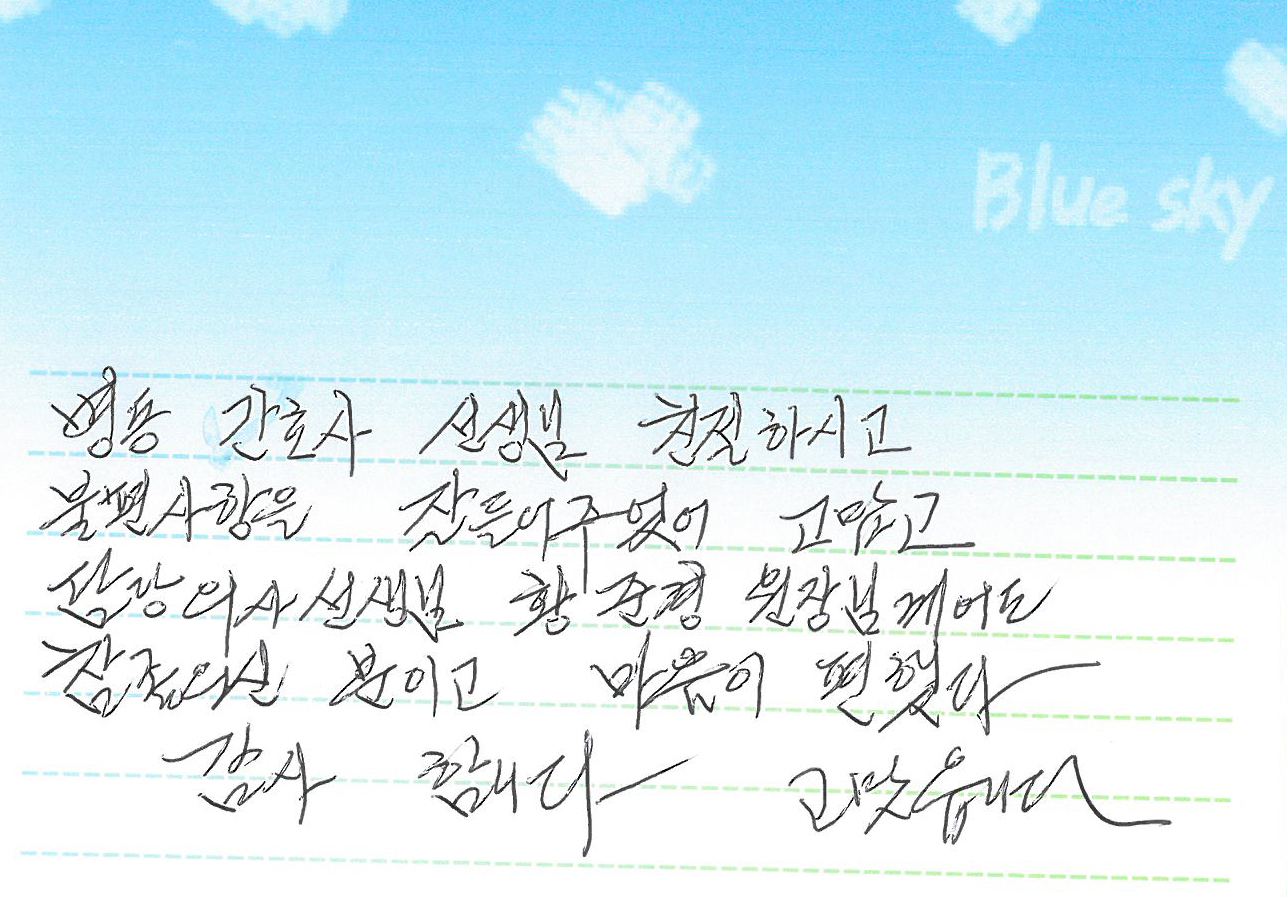 Blue sky
병동 간호사 선생님 친절하시고
불편사항을 잘들어주었어 고맙고
담당의사선생님 황준형 원장님께어도
참 좋의신 분이고 마음이 편했다
감사 합니다 고맛읍니다